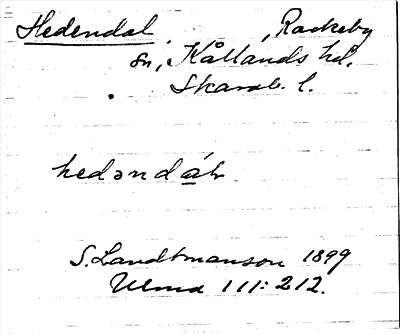 Hedendal , Rackeby
sn, Kållands hd.
Skarab. l.
hedəndáḷ
S. Landtmanson 1899
Ulma 111:212.